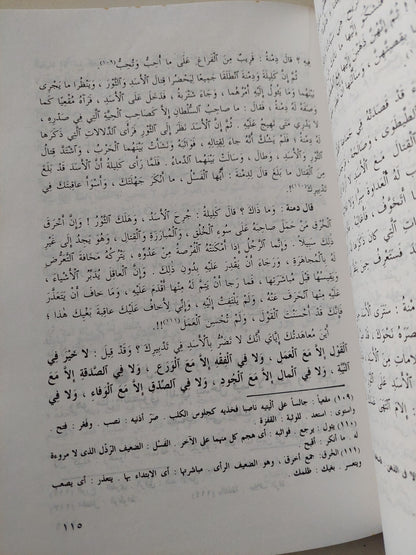 فيه ؟ قال دمنة : قَرِيبٌ مِنَ الْفَرَاغِ عَلَى مَا أُحِبُّ وَتُحِبُّ
ثُمَّ إِنَّ كَلِيلَةَ وَدِمْنَةَ انْطَلَقَا جَمِيعًا لِيَحْضُرَا قِتَالَ الْأَسَدِ وَالثَّوْرِ ، وَيَنْظُرَا مَا يَجْرِى
بَيْنَهُمَا وَمَا يَئُولُ إِلَيْهِ أَمْرُهُمَا ، وَجَاءَ شَتْرَبَةُ ، فَدَخَلَ عَلَى الْأَسَدِ ، فَرَآهُ مُقْعِيًا كَمَا
وَصَفَهُ لَهُ دِمْنَةُ ، فَقَالَ : مَا صَاحِبُ السُّلْطَانِ إِلَّا كَصَاحِبِ الْحَيَّةِ الَّتِي فِي صَدْرِهِ ،
لَا يَدْرِي مَتَى تَهِيجُ عَلَيْهِ . ثُمَّ إِنَّ الْأَسَدَ نَظَرَ إِلَى الثَّوْرِ فَرَأَى الدَّلَالَاتِ الَّتِي ذَكَرَهَا
لَهُ دِمْنَةُ ، فَلَمْ يَشُكَّ أَنَّهُ جَاءَ لِقِتَالِهِ ، فَوَاثَبَهُ وَنَشَأَتْ بَيْنَهُمَا الْحَرْبُ ، وَاشْتَدَّ قِتَالُ
الثَّوْرِ وَالْأَسَدِ ، وَطَالَ ، وَسَالَتْ بَيْنَهُمَا الدِّمَاءُ . فَلَمَّا رَأَى كَلِيلَةُ أَنَّ الْأَسَدَ قَدْ بَلَغَ
مِنَ الْقِتَالِ مَا بَلَغَ قَالَ لِدِمْنَةَ : أَيُّهَا الْفَسْلُ ، مَا أَنْكَرَ جَهْلَتَكَ ، وَأَسْوَأَ عَاقِبَتَكَ فِي
تَدْبِيرِكَ
قال دمنة : وَمَا ذَاكَ ؟ قَالَ كَلِيلَةُ : جُرِحَ الْأَسَدُ ، وَهَلَكَ الثَّوْرُ ! وَإِنَّ أَخْرَقَ
الْخُرْقِ مَنْ حَمَلَ صَاحِبَهُ عَلَى سُوءِ الْخُلُقِ ، وَالْمُبَارَزَةِ وَالْقِتَالِ ، وَهُوَ يَجِدُ إِلَى غَيْرِ
ذَلِكَ سَبِيلًا . وَإِنَّمَا الرَّجُلُ إِذَا أَمْكَنَتْهُ الْفُرْصَةُ مِنْ عَدُوِّهِ ، يَتْرُكُهُ مَخَافَةَ التَّعَرُّضِ
لَهُ بِالْمُجَاهَرَةِ ، وَرَجَاءَ أَنْ يَقْدِرَ عَلَيْهِ بِدُونِ ذَلِكَ . وَإِنَّ الْعَاقِلَ يُدَبِّرُ الْأَشْيَاءَ ،
وَيَقِيسُهَا قَبْلَ مُبَاشَرَتِهَا ، فَمَا رَجَا أَنْ يَتِمَّ لَهُ مِنْهَا أَقْدَمَ عَلَيْهِ ، وَمَا خَافَ أَنْ يَتَعَذَّرَ
عَلَيْهِ مِنْهَا انْحَرَفَ عَنْهُ ، وَلَمْ يَلْتَفِتْ إِلَيْهِ ، وَإِنِّي لَأَخَافُ عَلَيْكَ عَاقِبَةَ بَغْيِكَ هَذَا ؛
فَإِنَّكَ قَدْ أَحْسَنْتَ الْقَوْلَ ، وَلَمْ تُحْسِنِ الْعَمَلَ !!
أَيْنَ مُعَاهَدَتُكَ إِيَّايَ أَنَّكَ لَا تَضُرُّ بِالْأَسَدِ فِي تَدْبِيرِكَ ؟ وَقَدْ قِيلَ : لَا خَيْرَ فِي
الْقَوْلِ إِلَّا مَعَ الْعَمَلِ ، وَلَا فِي الْفِقْهِ إِلَّا مَعَ الْوَرَعِ ، وَلَا فِي الصَّدَقَةِ إِلَّا مَعَ
النِّيَّةِ ، وَلَا فِي الْمَالِ إِلَّا مَعَ الْجُودِ ، وَلَا فِي الصِّدْقِ إِلَّا مَعَ الْوَفَاءِ ، وَلَا فِي
(١٠٩) مقعياً : جالساً على أليتيه ناصبا فخذيه كجلوس الكلب . صر أذنيه : نصب . وفغر : فتح .
واستوى : استعد . للوثبة : القفزة .
(١١٠) يئول : يرجع . فواثبه : أى هجم كل منهما على الآخر . الفسل : الضعيف الرذل الذى لا مروءة
له . ما أنكر : أقبح .
(١١١) الخُرق : جمع أخرق ، وهو الضعيف الرأى . مباشرتها : أى الابتداء بها . يتعذر : أى يصعب
ويتعسر . بغيك : ظلمك .
١١٥